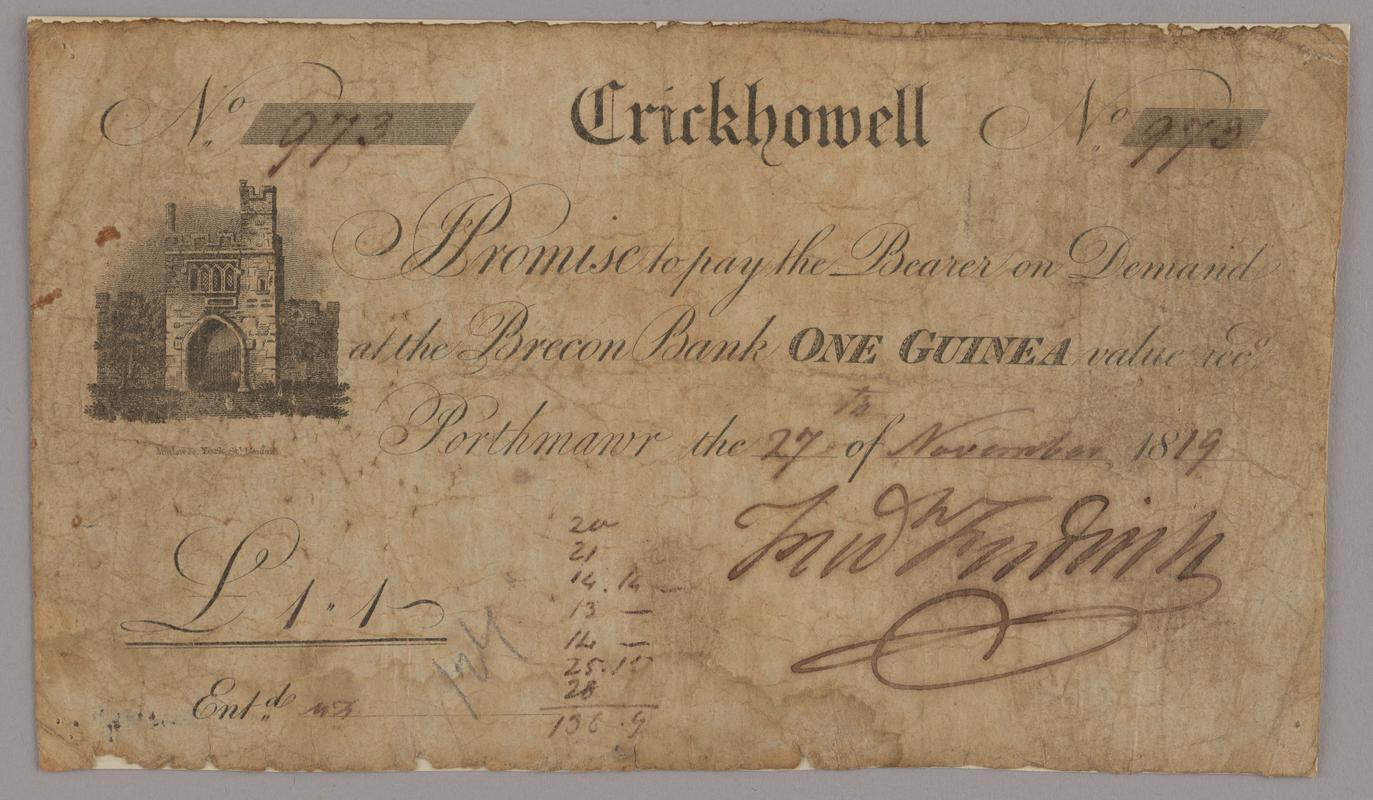 No 973 Crickhowell No 973
I Promise to pay the Bearer on Demand
at the Brecon Bank ONE GUINEA value recd
Porthmawr the 27th of November 1819
£1 " 1
20
21
14.14 —
13 —
14 —
25.15
28
136.9
Entd